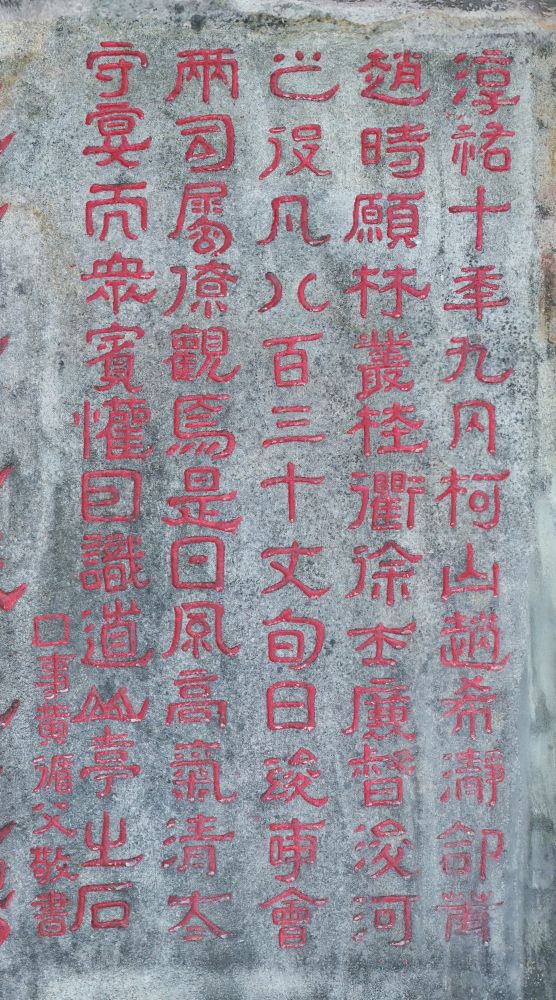 淳祐十年九月柯山趙希瀞命莆
趙時願林叢桂衢徐士廣督浚河
之役凡八百三十丈旬日竣事會
兩司屬僚觀焉是日風高氣清太
守宴而衆賓懽因識道山亭之石
□事黄循父敬書